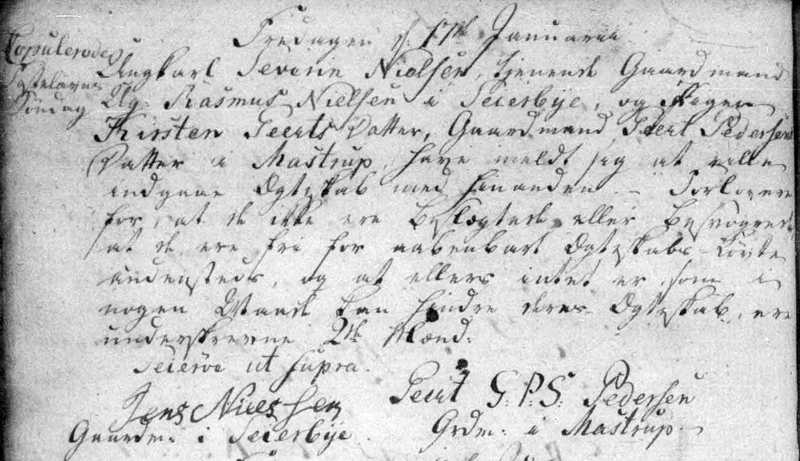 Fredagen d. 17de Januarii
Copulerede
Fastelavns
Søndag
Ungkarl Severin Nielsen, tienende Gaardmand
Ung Rasmus Nielsen i Seierbye, og Pigen
Kirsten Geerts Datter, Gaardmand Geert Pedersens
Datter i Mastrup, have meldt sig at ville
indgaae Ægteskab med hinanden. - Forlovere
for, at de ikke ere beslægtede eller besvogrede
at de ere fri for aabenbart Ægteskabs Løvte
andensteds, og at ellers intet er, som i
nogen Maade kan hindre deres Ægteskab, ere
underskrevne 2de Mænd.
Seierøe ut supra.
Jens Nielsen Geert G. P. S. Pedersen
Gaardm. i Seierbye. Grdm. i Mastrup.